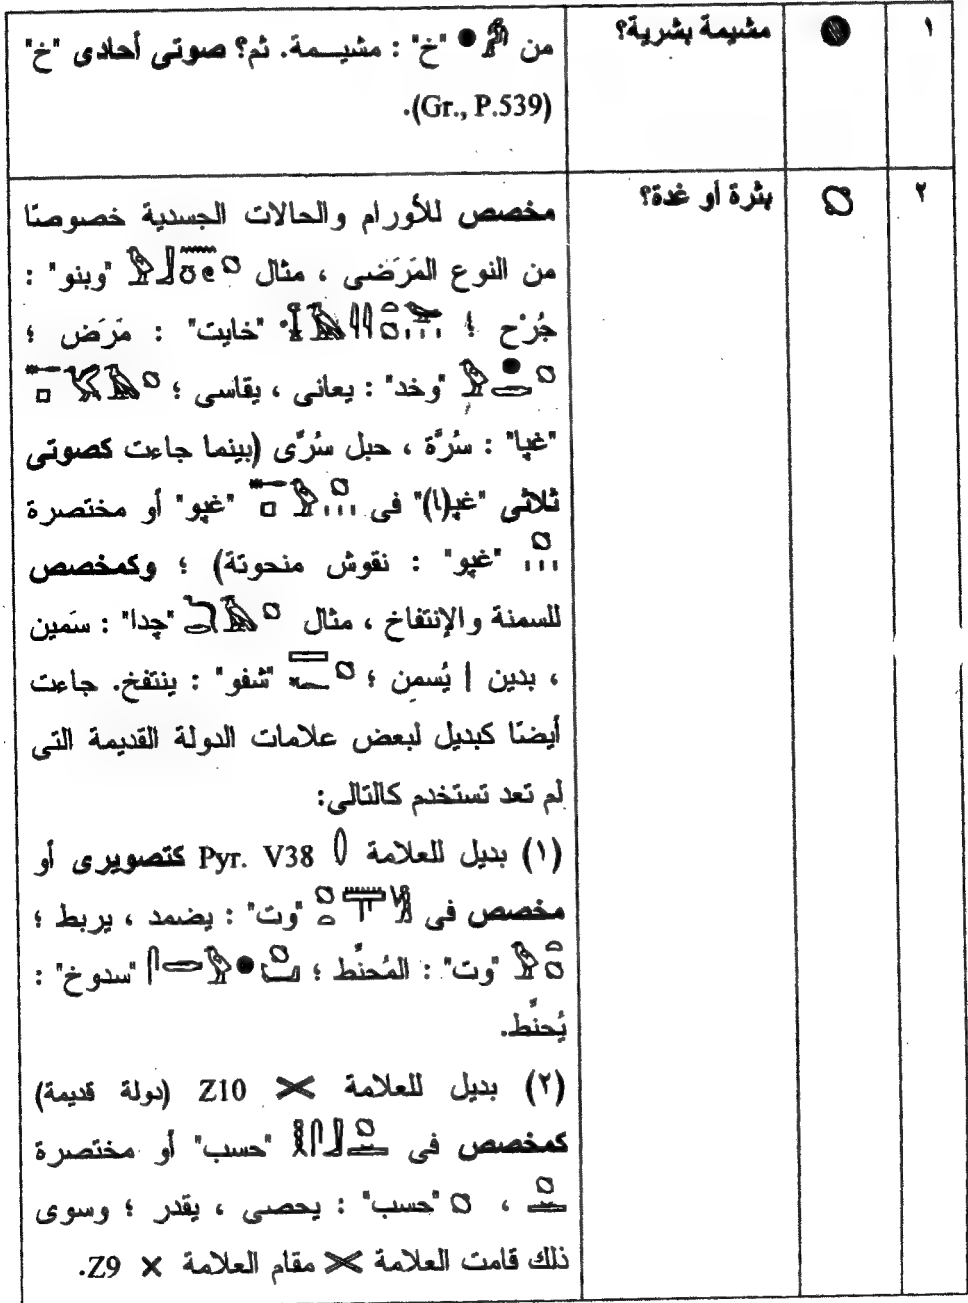 ١ ● مشيمة بشرية؟ من 𓀔 𓐍 "خ" : مشيـــمة. ثم؟ صوتى أحادى "خ"
(Gr., P.539).
٢ بثرة أو غدة؟ مخصص للأورام والحالات الجسدية خصوصًا
من النوع المَرَضى ، مثال "وبنو" :
جُرْح ؛ "خايت" : مَرَض ؛
"وخد" : يعانى ، يقاسى ؛
"غپا" : سُرَّة ، حبل سُرِّى (بينما جاءت كصوتى
ثلاثى "غپ(ا)" فى "غپو" أو مختصرة
"غپو" : نقوش منحوتة) ؛ وكمخصص
للسمنة والإنتفاخ ، مثال "چدا" : سَمين
، بدين | يُسمن ؛ "شفو" : ينتفخ. جاءت
أيضًا كبديل لبعض علامات الدولة القديمة التى
لم تعد تستخدم كالتالى:
(١) بديل للعلامة Pyr. V38 كتصويرى أو
مخصص فى "وت" : يضمد ، يربط ؛
"وت" : المُحنِّط ؛ "سدوخ" :
يُحنِّط.
(٢) بديل للعلامة Z10 (دولة قديمة)
كمخصص فى "حسب" أو مختصرة
، "حسب" : يحصى ، يقدر ؛ وسوى
ذلك قامت العلامة مقام العلامة Z9.